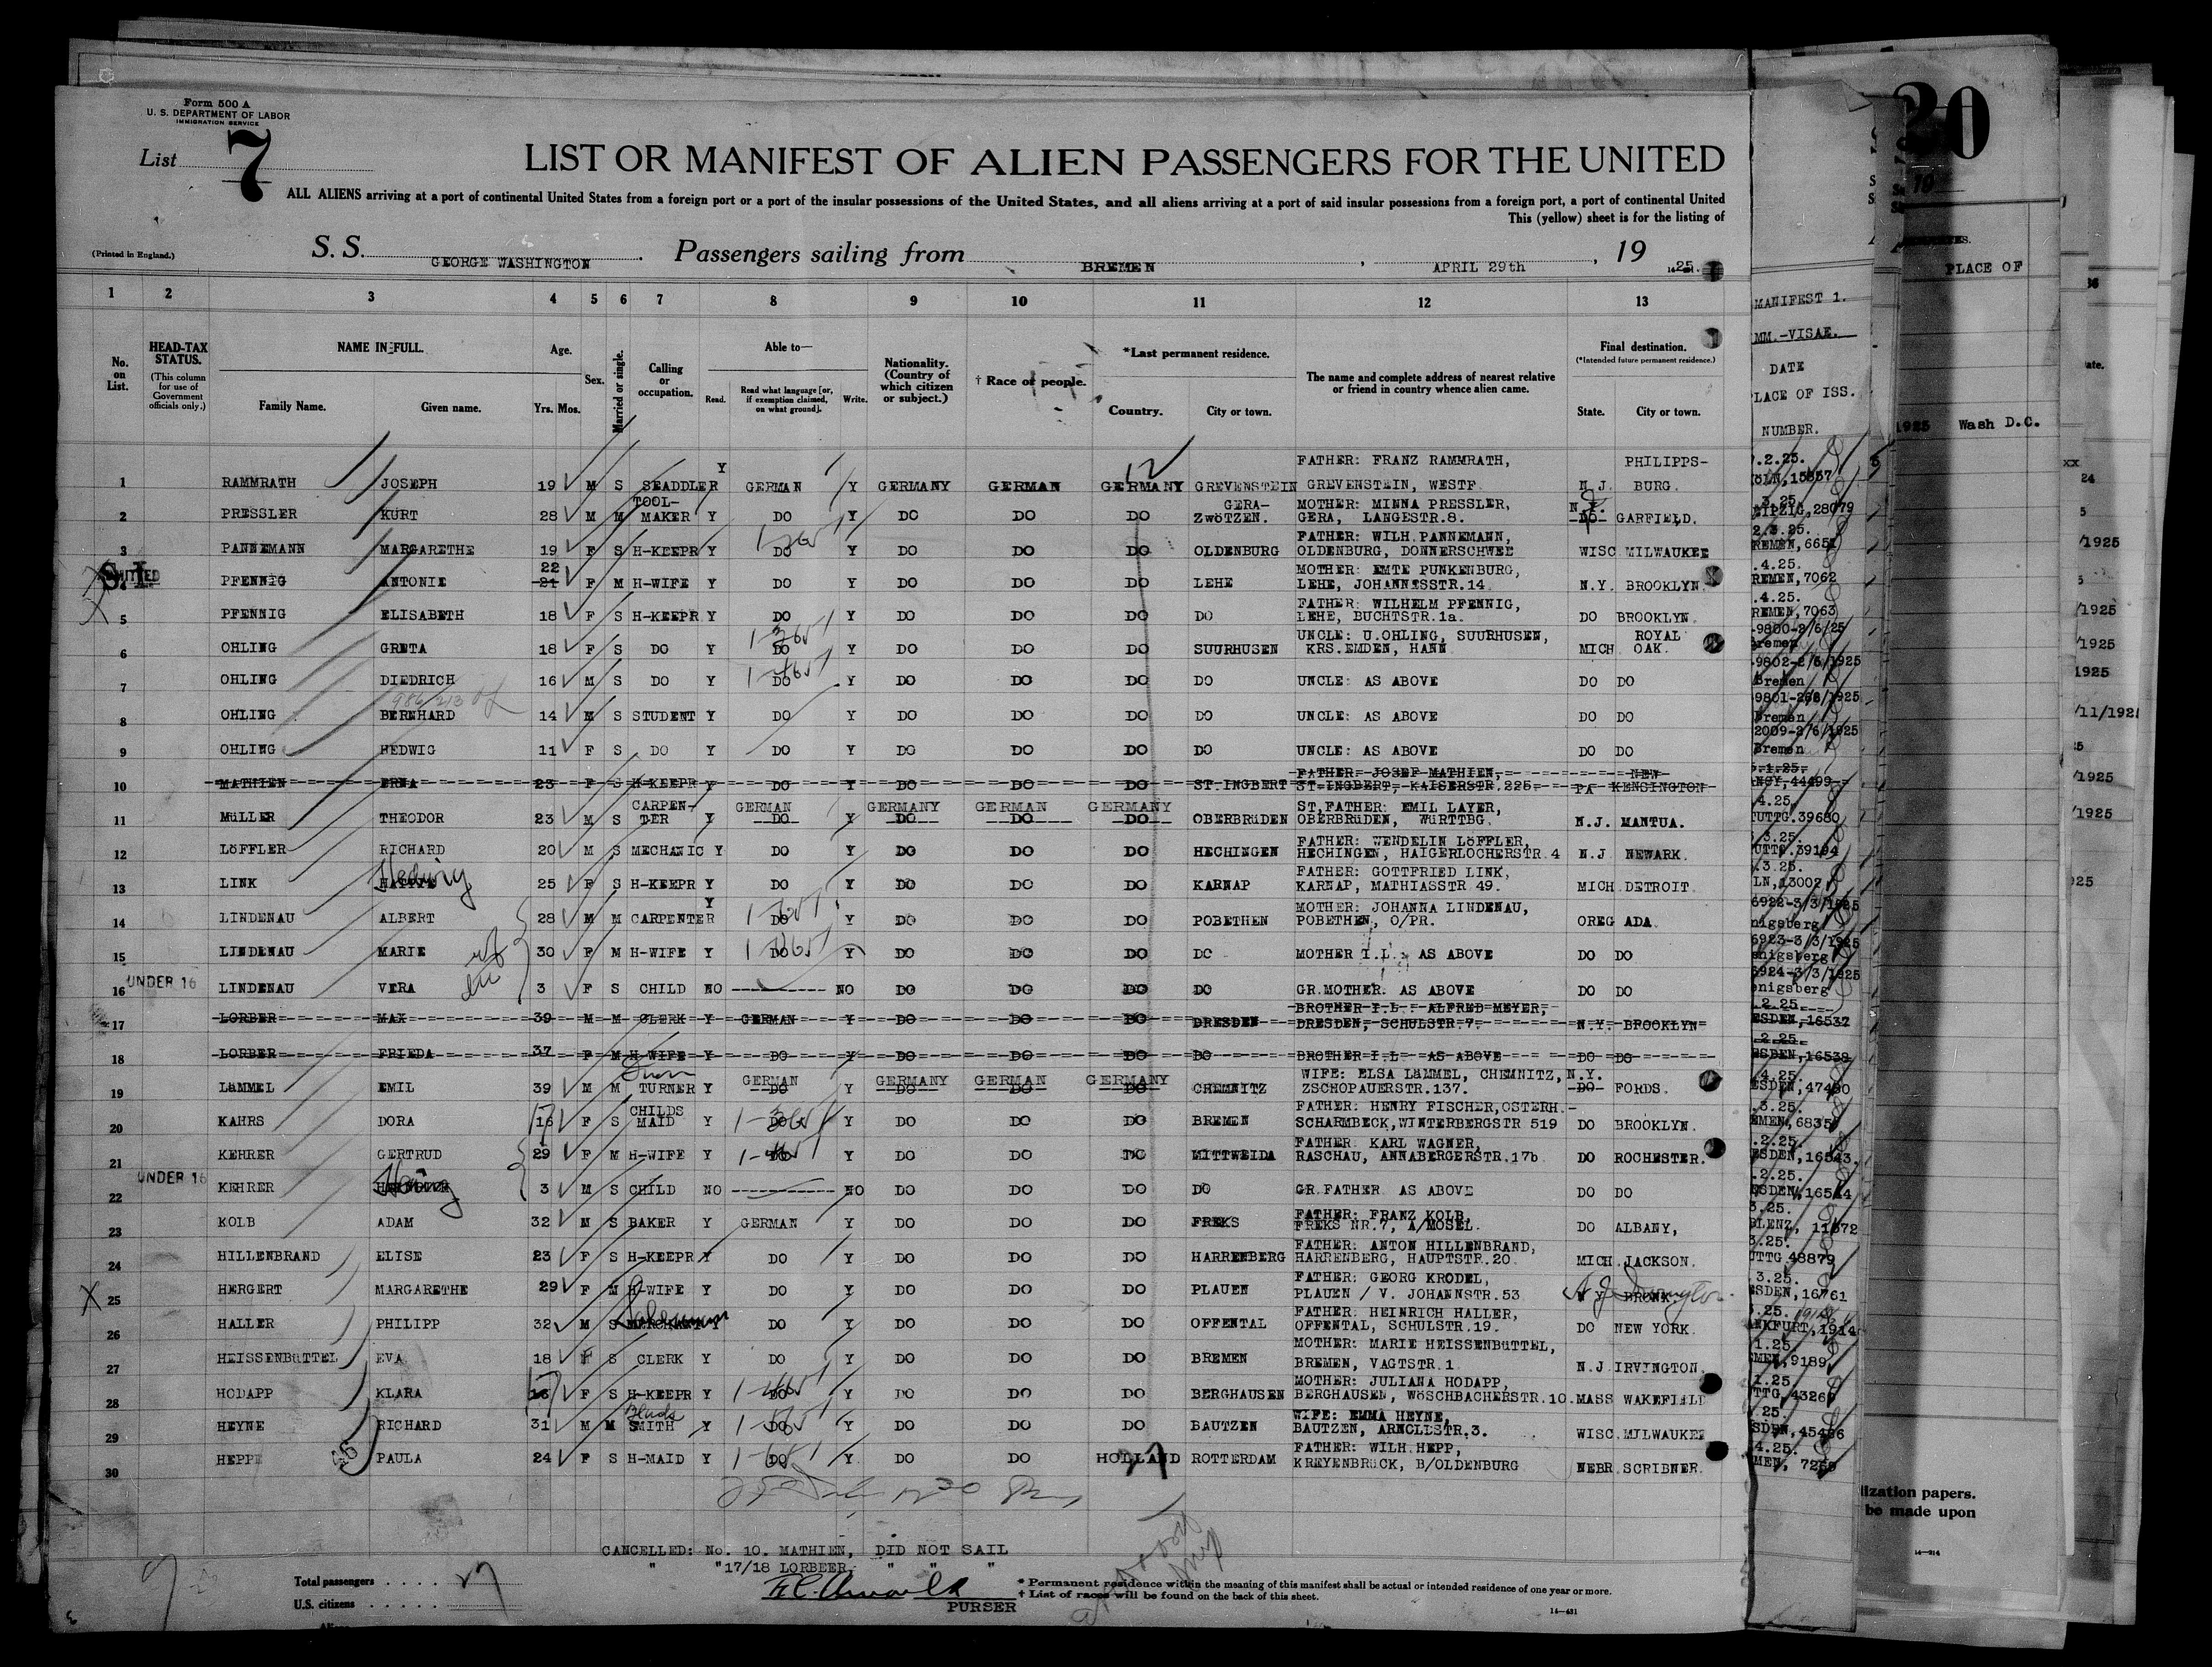 Form 500 A
U. S. DEPARTMENT OF LABOR
IMMIGRATION SERVICE
List 7
LIST OR MANIFEST OF ALIEN PASSENGERS FOR THE UNITED
ALL ALIENS arriving at a port of continental United States from a foreign port or a port of the insular possessions of the United States, and all aliens arriving at a port of said insular possessions from a foreign port, a port of continental United
This (yellow) sheet is for the listing of
(Printed in England.)
S. S. GEORGE WASHINGTON. Passengers sailing from BREMEN, APRIL 29th, 1925.
1 2 3 4 5 6 7 8 9 10 11 12 13
No. on List.
HEAD-TAX STATUS.
(This column for use of Government officials only.)
NAME IN FULL.
Family Name. Given name.
Age.
Yrs. Mos.
Sex.
Married or single.
Calling or occupation.
Able to—
Read. Read what language [or, if exemption claimed, on what ground]. Write.
Nationality. (Country of which citizen or subject.)
† Race or people.
*Last permanent residence.
Country. City or town.
The name and complete address of nearest relative or friend in country whence alien came.
Final destination.
(*Intended future permanent residence.)
State. City or town.
1 RAMMRATH JOSEPH 19 M S SEADDLER Y GERMAN Y GERMANY GERMAN GERMANY GREVENSTEIN FATHER: FRANZ RAMMRATH, GREVENSTEIN, WESTF. N.J. PHILIPPS-BURG.
2 PRESSLER KURT 28 M M TOOL-MAKER Y DO Y DO DO DO GERA-ZWÖTZEN. MOTHER: MINNA PRESSLER, GERA, LANGESTR.8. N.J. DO GARFIELD.
3 PANNEMANN MARGARETHE 19 F S H-KEEPR Y DO Y DO DO DO OLDENBURG FATHER: WILH.PANNEMANN, OLDENBURG, DONNERSCHWEE WISC MILWAUKEE
S.I. PFENNIG ANTONIE 22 21 F M H-WIFE Y DO Y DO DO DO LEHE MOTHER: EMTE PUNKENBURG, LEHE, JOHANNISSTR.14. N.Y. BROOKLYN.
5 PFENNIG ELISABETH 18 F S H-KEEPR Y DO Y DO DO DO DO FATHER: WILHELM PFENNIG, LEHE, BUCHTSTR.1a. DO BROOKLYN.
6 OHLING GRETA 18 F S DO Y DO Y DO DO DO SUURHUSEN UNCLE: U.OHLING, SUURHUSEN, KRS.EMDEN, HANN MICH ROYAL OAK.
7 OHLING DIEDRICH 16 M S DO Y DO Y DO DO DO DO UNCLE: AS ABOVE DO DO
8 OHLING BERNHARD 14 M S STUDENT Y DO Y DO DO DO DO UNCLE: AS ABOVE DO DO
9 OHLING HEDWIG 11 F S DO Y DO Y DO DO DO DO UNCLE: AS ABOVE DO DO
10 MATHIEN ERNA 23 F S H-KEEPR Y DO Y DO DO DO ST.INGBERT FATHER: JOSEF MATHIEN, ST.INGBERT, KAISERSTR.225. PA NEW KENSINGTON
11 MüLLER THEODOR 23 M S CARPEN-TER Y GERMAN DO Y GERMANY DO GERMAN DO GERMANY DO OBERBRüDEN ST.FATHER: EMIL LAYER, OBERBRüDEN, WüRTTBG. N.J. MANTUA.
12 LöFFLER RICHARD 20 M S MECHANIC Y DO Y DO DO DO HECHINGEN FATHER: WENDELIN LöFFLER, HECHINGEN, HAIGERLOCHERSTR.4 N.J NEWARK.
13 LINK Hedwig 25 F S H-KEEPR Y DO Y DO DO DO KARNAP FATHER: GOTTFRIED LINK, KARNAP, MATHIASSTR 49. MICH DETROIT
14 LINDENAU ALBERT 28 M M CARPENTER Y DO Y DO DO DO POBETHEN MOTHER: JOHANNA LINDENAU, POBETHEN, O/PR. OREG ADA.
15 LINDENAU MARIE 30 F M H-WIFE Y DO Y DO DO DO DO MOTHER I.L.: AS ABOVE DO DO
UNDER 16
16 LINDENAU VERA 3 F S CHILD NO NO DO DO DO DO GR.MOTHER. AS ABOVE DO DO
17 LORBER MAX 39 M M CLERK Y GERMAN Y DO DO DO DRESDEN BROTHER I.L.: ALFRED MEYER, DRESDEN, SCHULSTR.7. N.Y. BROOKLYN
18 LORBER FRIEDA 37 F M H-WIFE Y DO Y DO DO DO DO BROTHER I.L. AS ABOVE DO DO
19 LäMMEL EMIL 39 M M TURNER Y GERMAN DO Y GERMANY DO GERMAN DO GERMANY DO CHEMNITZ WIFE: ELSA LäMMEL, CHEMNITZ, ZSCHOPAUERSTR.137. N.Y. DO FORDS.
20 KAHRS DORA 17 16 F S CHILDS MAID Y DO Y DO DO DO BREMEN FATHER: HENRY FISCHER,OSTERH.-SCHARMBECK,WINTERBERGSTR 519 DO BROOKLYN.
21 KEHRER GERTRUD 29 F M H-WIFE Y DO Y DO DO DO MITTWEIDA FATHER. KARL WAGNER, RASCHAU, ANNABERGERSTR.17b DO ROCHESTER.
UNDER 16
22 KEHRER 3 M S CHILD NO NO DO DO DO DO GR.FATHER AS ABOVE DO DO
23 KOLB ADAM 32 M S BAKER Y GERMAN Y DO DO DO FREKS FATHER: FRANZ KOLB, FREKS NR.7, A/MOSEL. DO ALBANY,
24 HILLENBRAND ELISE 23 F S H-KEEPR Y DO Y DO DO DO HARRENBERG FATHER: ANTON HILLENBRAND, HARRENBERG, HAUPTSTR.20 MICH JACKSON.
25 HERGERT MARGARETHE 29 F M H-WIFE Y DO Y DO DO DO PLAUEN FATHER: GEORG KRODEL, PLAUEN / V. JOHANNSTR.53 N.Y. BRONX
26 HALLER PHILIPP 32 M S Y DO Y DO DO DO OFFENTAL FATHER. HEINRICH HALLER, OFFENTAL, SCHULSTR.19. DO NEW YORK.
27 HEISSENBüTTEL EVA 18 F S CLERK Y DO Y DO DO DO BREMEN MOTHER: MARIE HEISSENBüTTEL, BREMEN, VAGTSTR.1 N.J. IRVINGTON.
28 HODAPP KLARA 17 16 F S H-KEEPR Y DO Y DO DO DO BERGHAUSEN MOTHER: JULIANA HODAPP, BERGHAUSEN, WöSCHBACHERSTR.10. MASS WAKEFIELD
29 HEYNE RICHARD 31 M M SMITH Y DO Y DO DO DO BAUTZEN WIFE: EMMA HEYNE, BAUTZEN, ARNOLDSTR.3. WISC. MILWAUKEE
30 HEPPE PAULA 24 F S H-MAID Y DO Y DO DO HOLLAND ROTTERDAM FATHER: WILH.HEPP, KREYENBRüCK, B/OLDENBURG NEBR. SCRIBNER.
CANCELLED: No. 10. MATHIEN, DID NOT SAIL
" "17/18 LORBEER " " "
PURSER
Total passengers 27
U.S. citizens
* Permanent residence within the meaning of this manifest shall be actual or intended residence of one year or more.
† List of races will be found on the back of this sheet.
14—431
MANIFEST 1.
MM.-VISAE.
DATE
PLACE OF ISS.
NUMBER.
20
PLACE OF
1925 Wash D.C.
lization papers.
be made upon